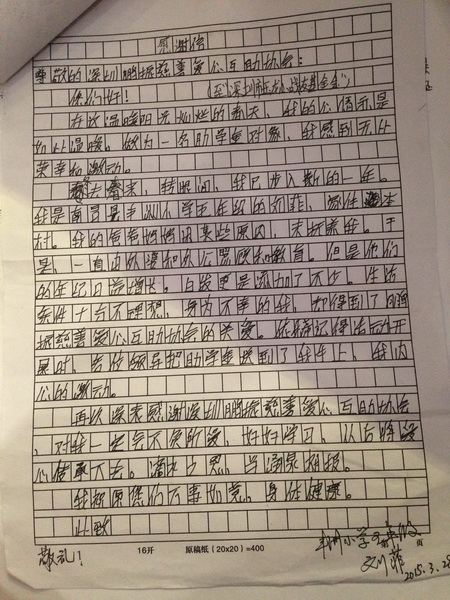 感谢信
尊敬的深圳鹏振慈善爱心互助协会:
你们好!
在这温暖阳光灿烂的春天,我的心情亦是
如此温暖。做为一名助学金对象,我感到无比
荣幸和激动。
冬去春来,转眼间,我已步入新的一年。
我是南哥里丰州小学五年级的刘菲,家住
村。我的爸爸妈妈因某些原因,未抚养我。于
是,一直由外婆和外公照顾和教育。但是他们
的年纪日益增长。白发更是添加了不少。生活
条件十分不理想,身为不幸的我,却得到了鹏
振慈善爱心互助协会的关爱。依稀记得活动开
展时,各位领导把助学金送到了我手上,我内
心的激动。
再次深表感谢深圳鹏振慈善爱心互助协会
,对我一定会不负所爱,好好学习,以后将爱
心传承下去。滴水之恩,当涌泉相报。
我祝愿您们万事如意,身体健康。
此致
16开 原稿纸 (20x20) =400 页
敬礼!
小学
刘菲
2015.3.28